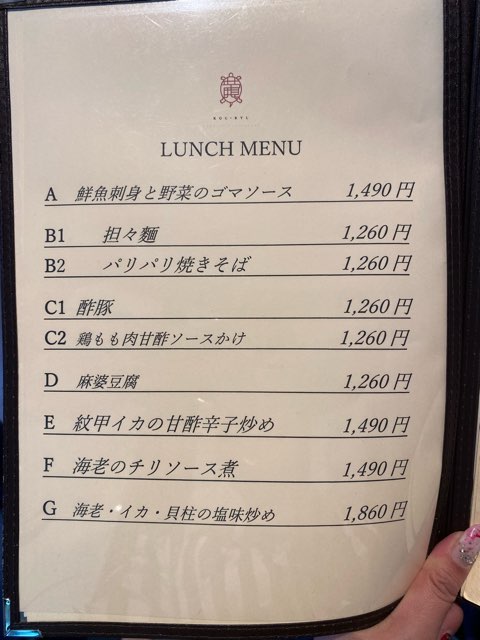 LUNCH MENU
A 鮮魚刺身と野菜のゴマソース 1,490円
B1 担々麺 1,260円
B2 パリパリ焼きそば 1,260円
C1 酢豚 1,260円
C2 鶏もも肉甘酢ソースかけ 1,260円
D 麻婆豆腐 1,260円
E 紋甲イカの甘酢辛子炒め 1,490円
F 海老のチリソース煮 1,490円
G 海老・イカ・貝柱の塩味炒め 1,860円